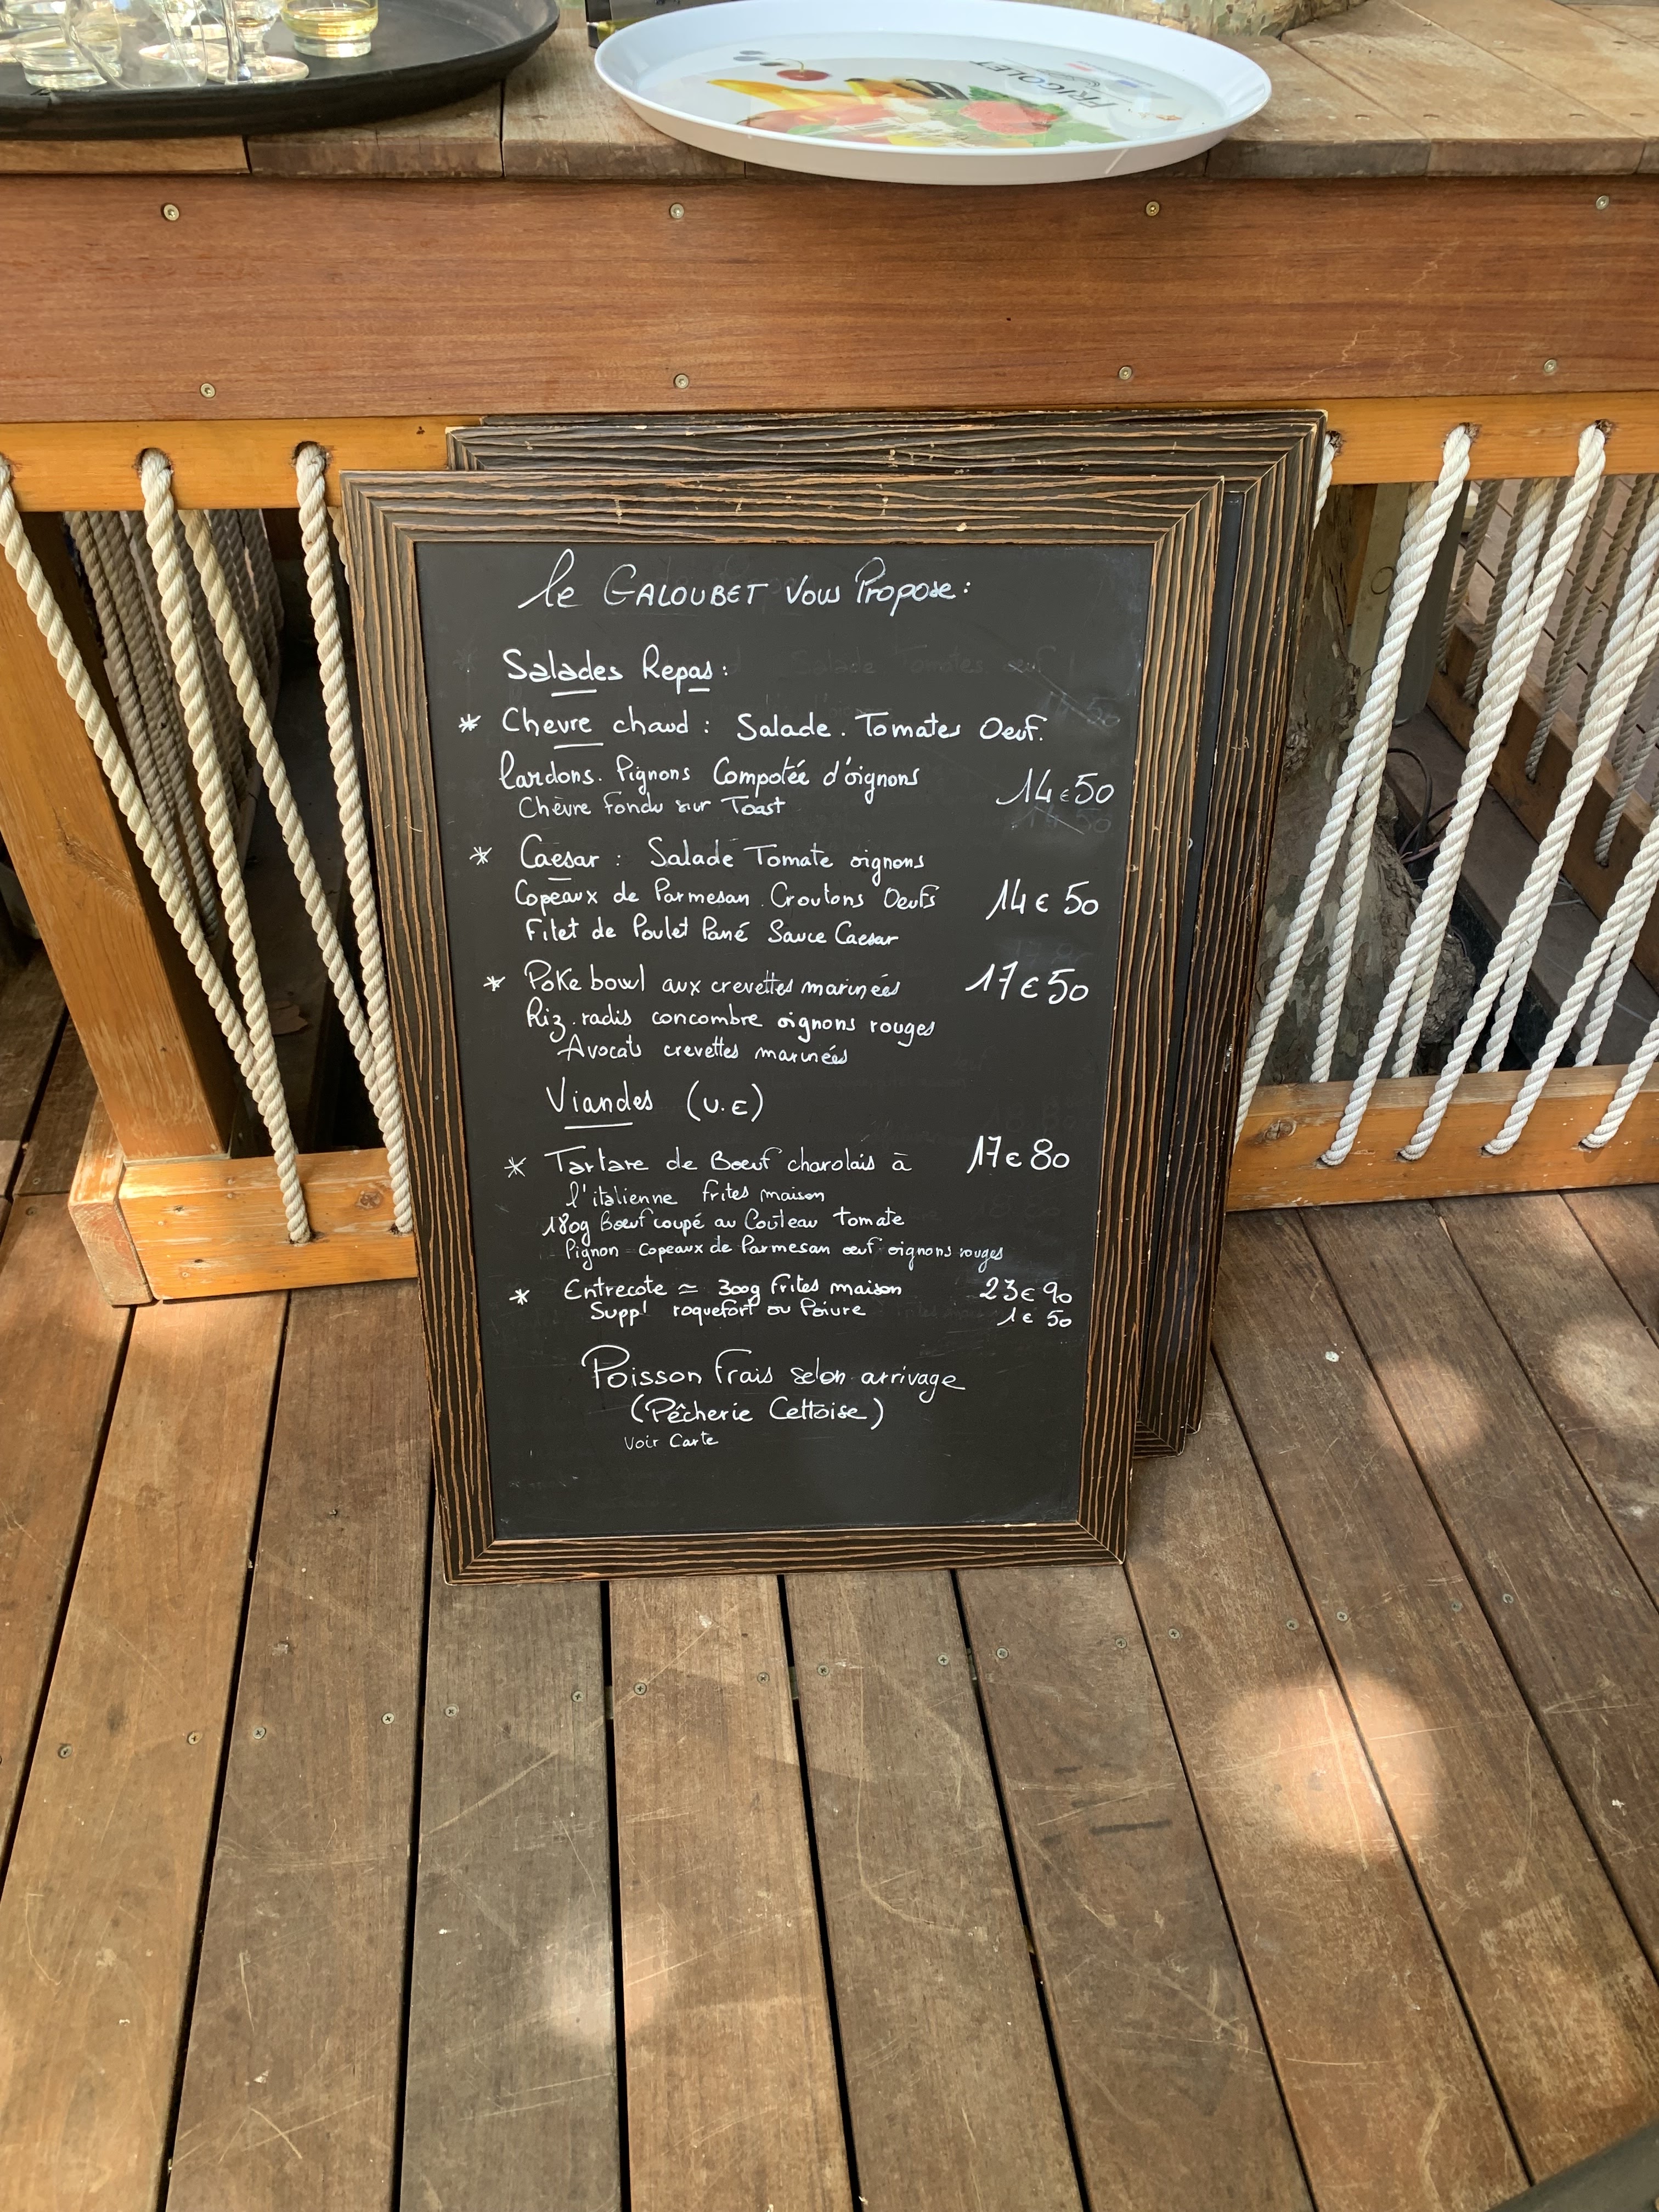 FRIGOLET
Le GALOUBET Vous Propose :
Salades Repas :
* Chevre chaud : Salade . Tomates Oeuf.
lardons . Pignons Compotée d'oignons 14€50
Chèvre fondu sur Toast
* Caesar : Salade Tomate oignons
Copeaux de Parmesan . Croutons Oeufs 14€50
Filet de Poulet Pané Sauce Caesar
* Poke bowl aux crevettes marinées 17€50
Riz . radis concombre oignons rouges
Avocats crevettes marinées
Viandes (U.E)
* Tartare de Bœuf charolais à 17€80
l'italienne frites maison
180g Bœuf coupé au Couteau tomate
Pignon Copeaux de Parmesan œuf oignons rouges
* Entrecote ≃ 300g Frites maison 23€90
Suppl roquefort ou Poivre 1€50
Poisson Frais selon arrivage
(Pêcherie Cettoise)
Voir Carte